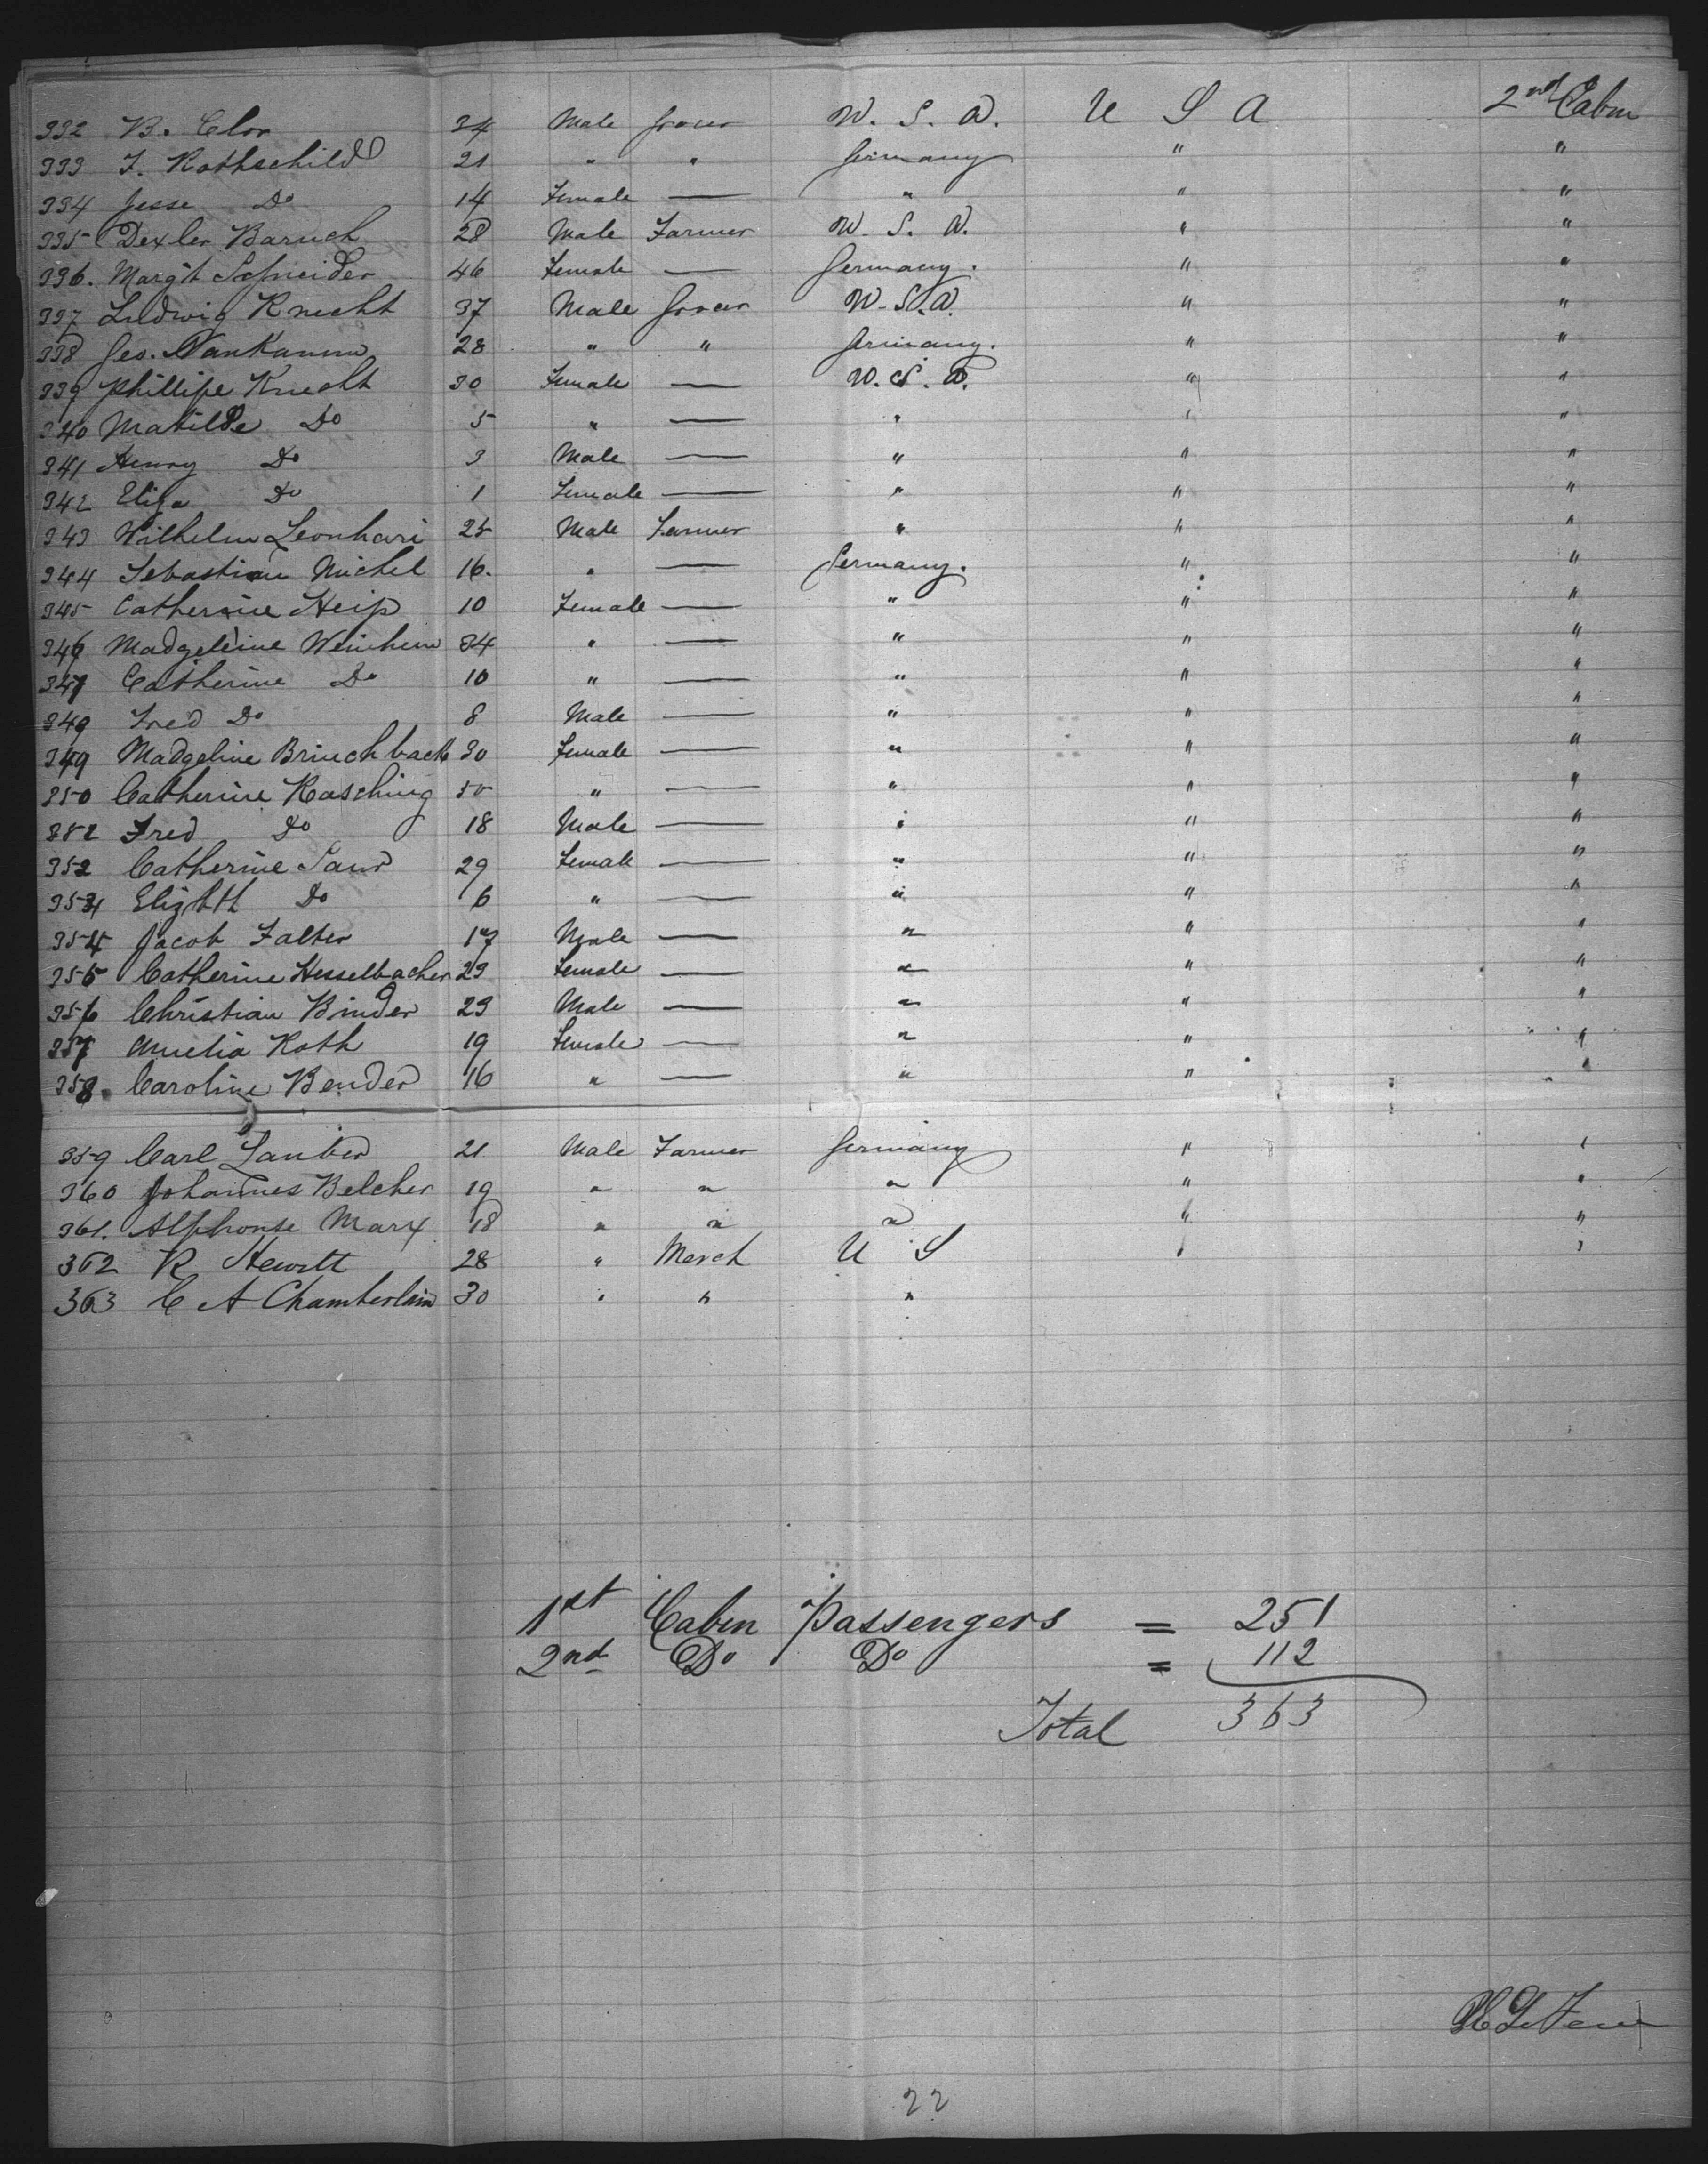 332 B. Clor 34 Male Grocer W. S. A. U S A 2nd Cabin
333 I. Rothschild 21 " " Germany " "
334 Jesse Do 14 Female — " " "
335 Dexler Baruch 28 Male Farmer W. S. A. " "
336. Margt Schneider 46 Female — Germany. " "
337 Ludwig Knecht 37 Male Grocer W. S. A. " "
338 Geo. Nankamm 28 " " Germany. " "
339 Phillipe Knecht 30 Female — W. S. A. " "
340 Matilde Do 5 " — " " "
341 Henry Do 3 Male — " " "
342 Eliza Do 1 Female — " " "
343 Wilhelm Leonhari 25 Male Farmer " " "
344 Sebastian Michel 16. " — Germany. " "
345 Catherine Heip 10 Female — " " "
346 Madgeleine Weinheim 34 " — " " "
347 Catherine Do 10 " — " " "
348 Fred Do 8 Male — " " "
349 Madgeline Brinchback 30 Female — " " "
350 Catherine Rasching 50 " — " " "
352 Fred Do 18 Male — " " "
352 Catherine Saur 29 Female — " " "
353 Elizbth Do 6 " — " " "
354 Jacob Falter 17 Male — " " "
355 Catherine Hesselbacher 23 Female — " " "
356 Christian Binder 23 Male — " " "
357 Amelia Roth 19 Female — " " "
358. Caroline Bender 16 " — " " "
359 Carl Lauber 21 Male Farmer Germany " "
360 Johannes Belcher 19 " " " " "
361. Alphonse Marx 18 " " " " "
362 R Hewitt 28 " Merch U S " "
363 C A Chamberlain 30 " " "
1st Cabin Passengers = 251
2nd Do Do = 112
Total 363
22